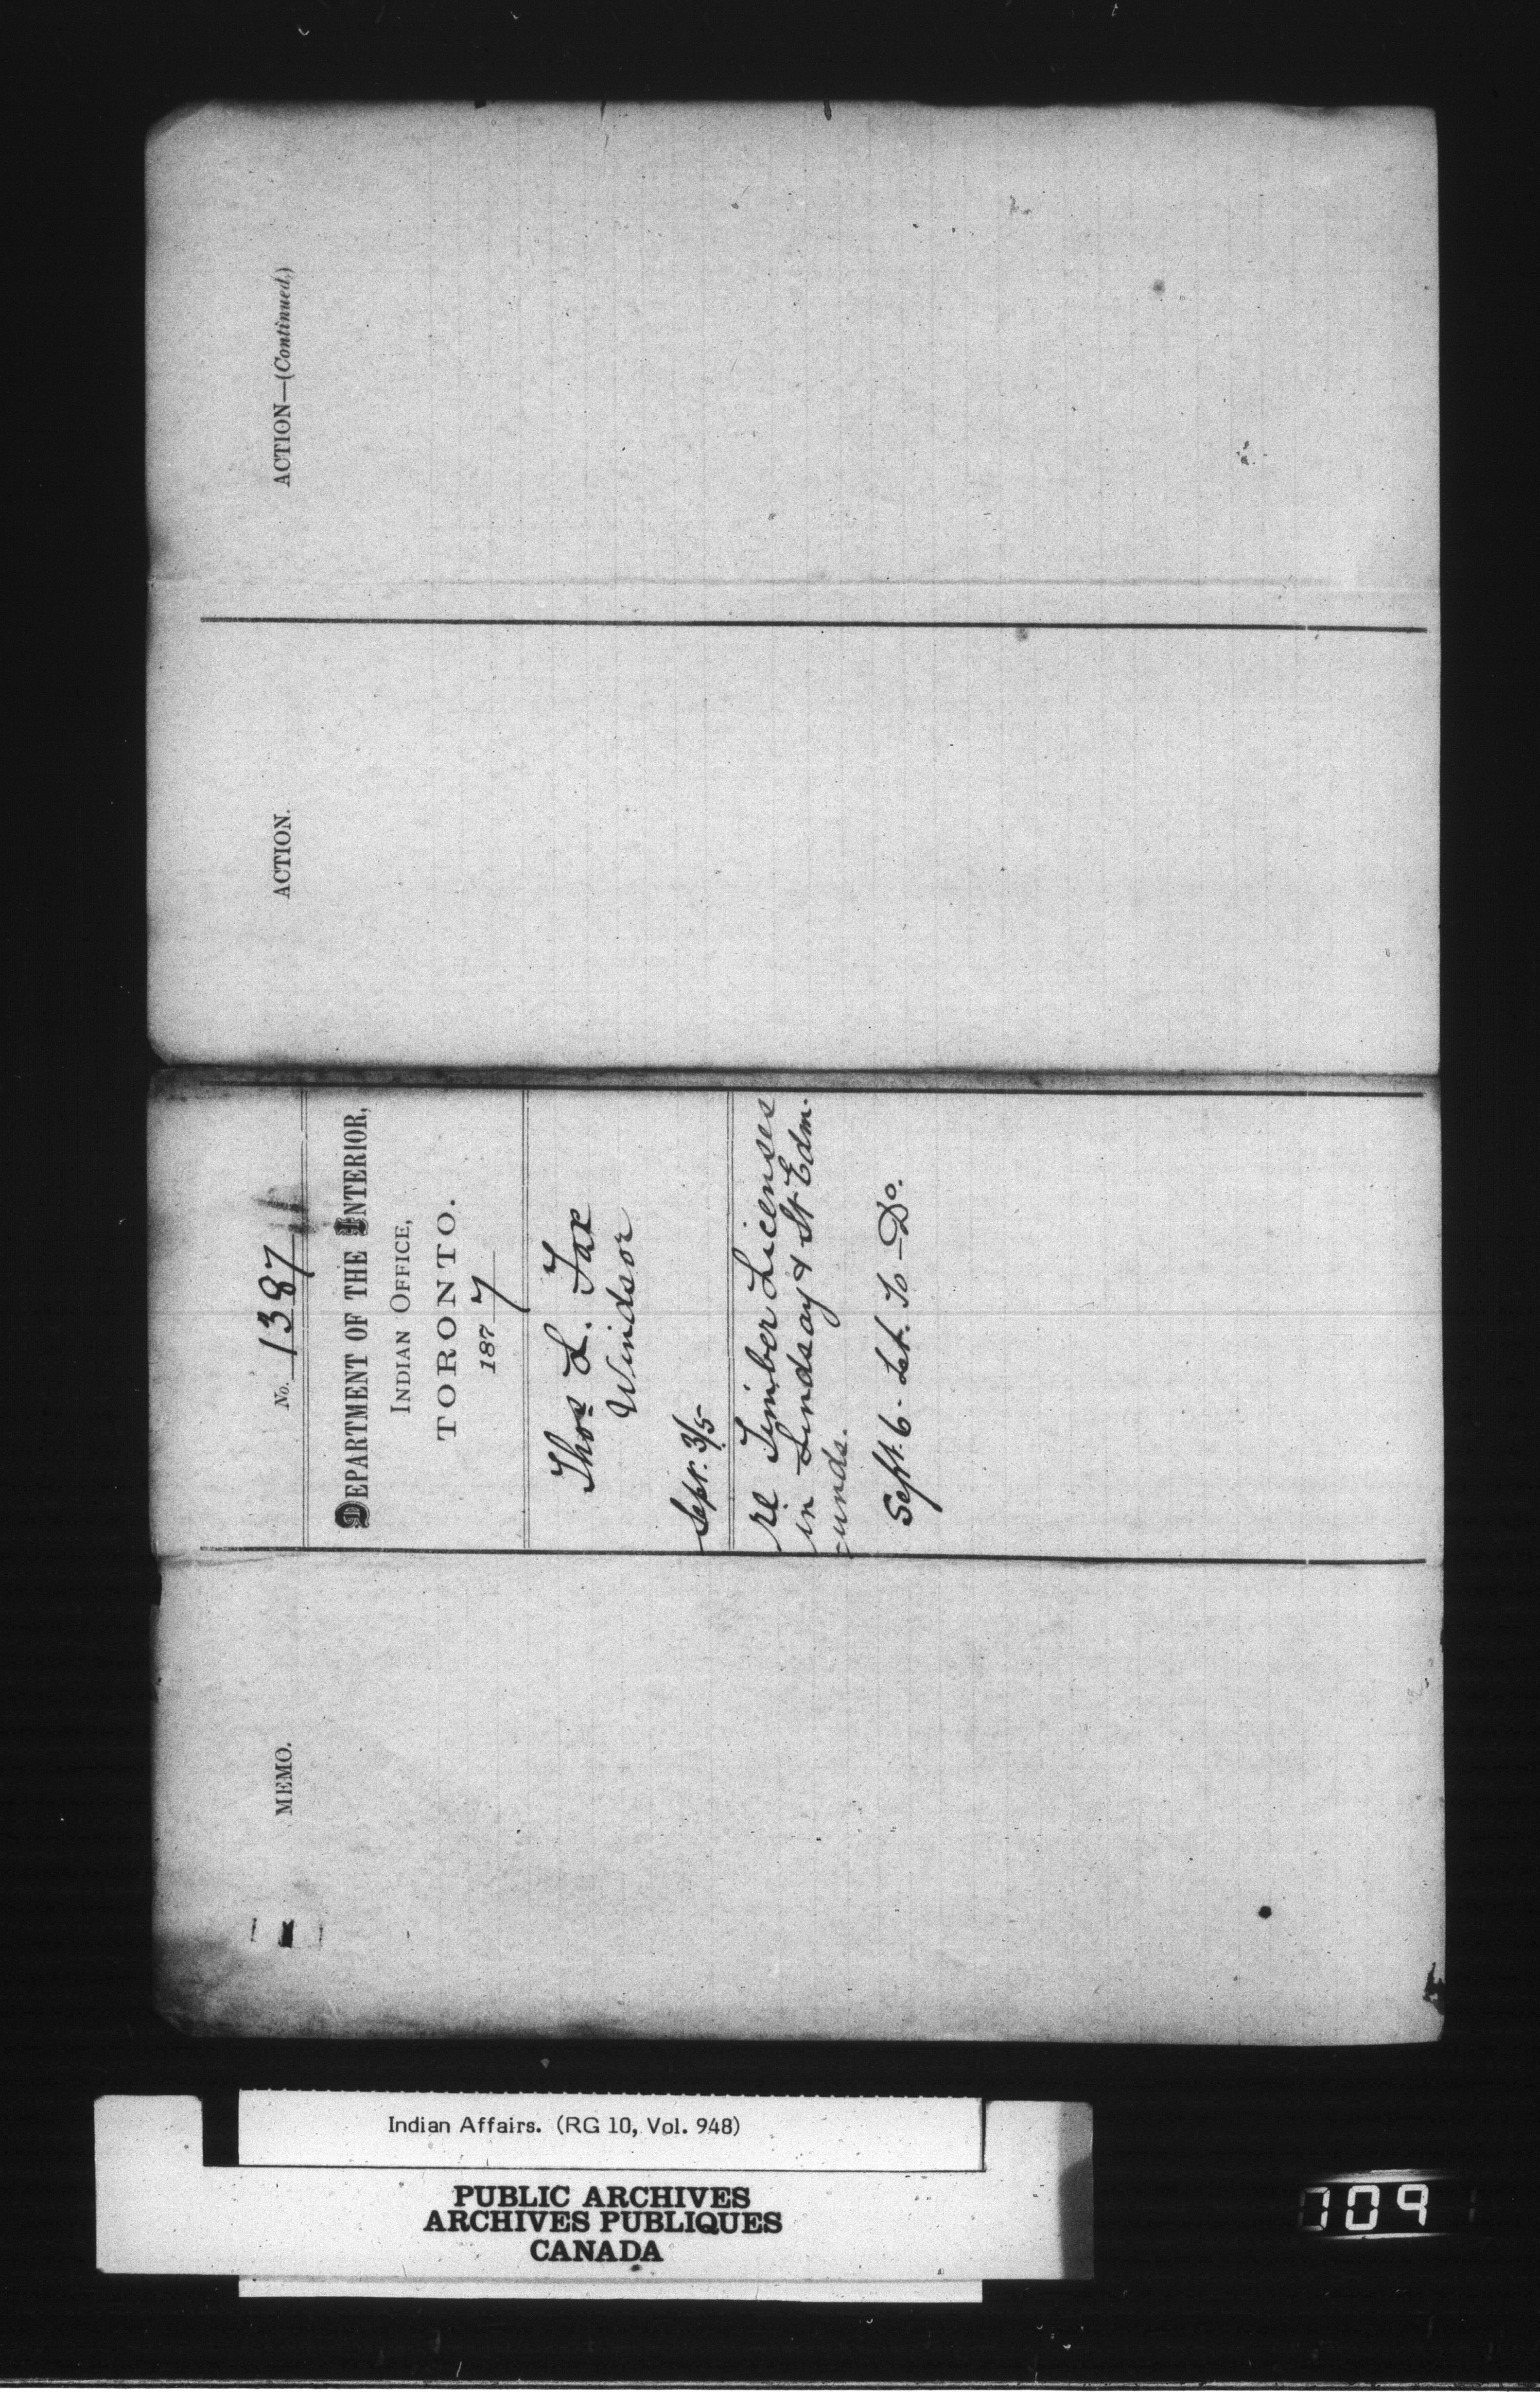 MEMO.
No. 1387
DEPARTMENT OF THE INTERIOR,
INDIAN OFFICE,
TORONTO.
1877
Thos L. Fax
Windsor
Sept. 3/5
re Timber Licenses
in Lindsay & St. Edm-
-unds.
Sept. 6 - Let. To - Do.
ACTION.
ACTION—(Continued,)
Indian Affairs. (RG 10, Vol. 948)
PUBLIC ARCHIVES
ARCHIVES PUBLIQUES
CANADA
709